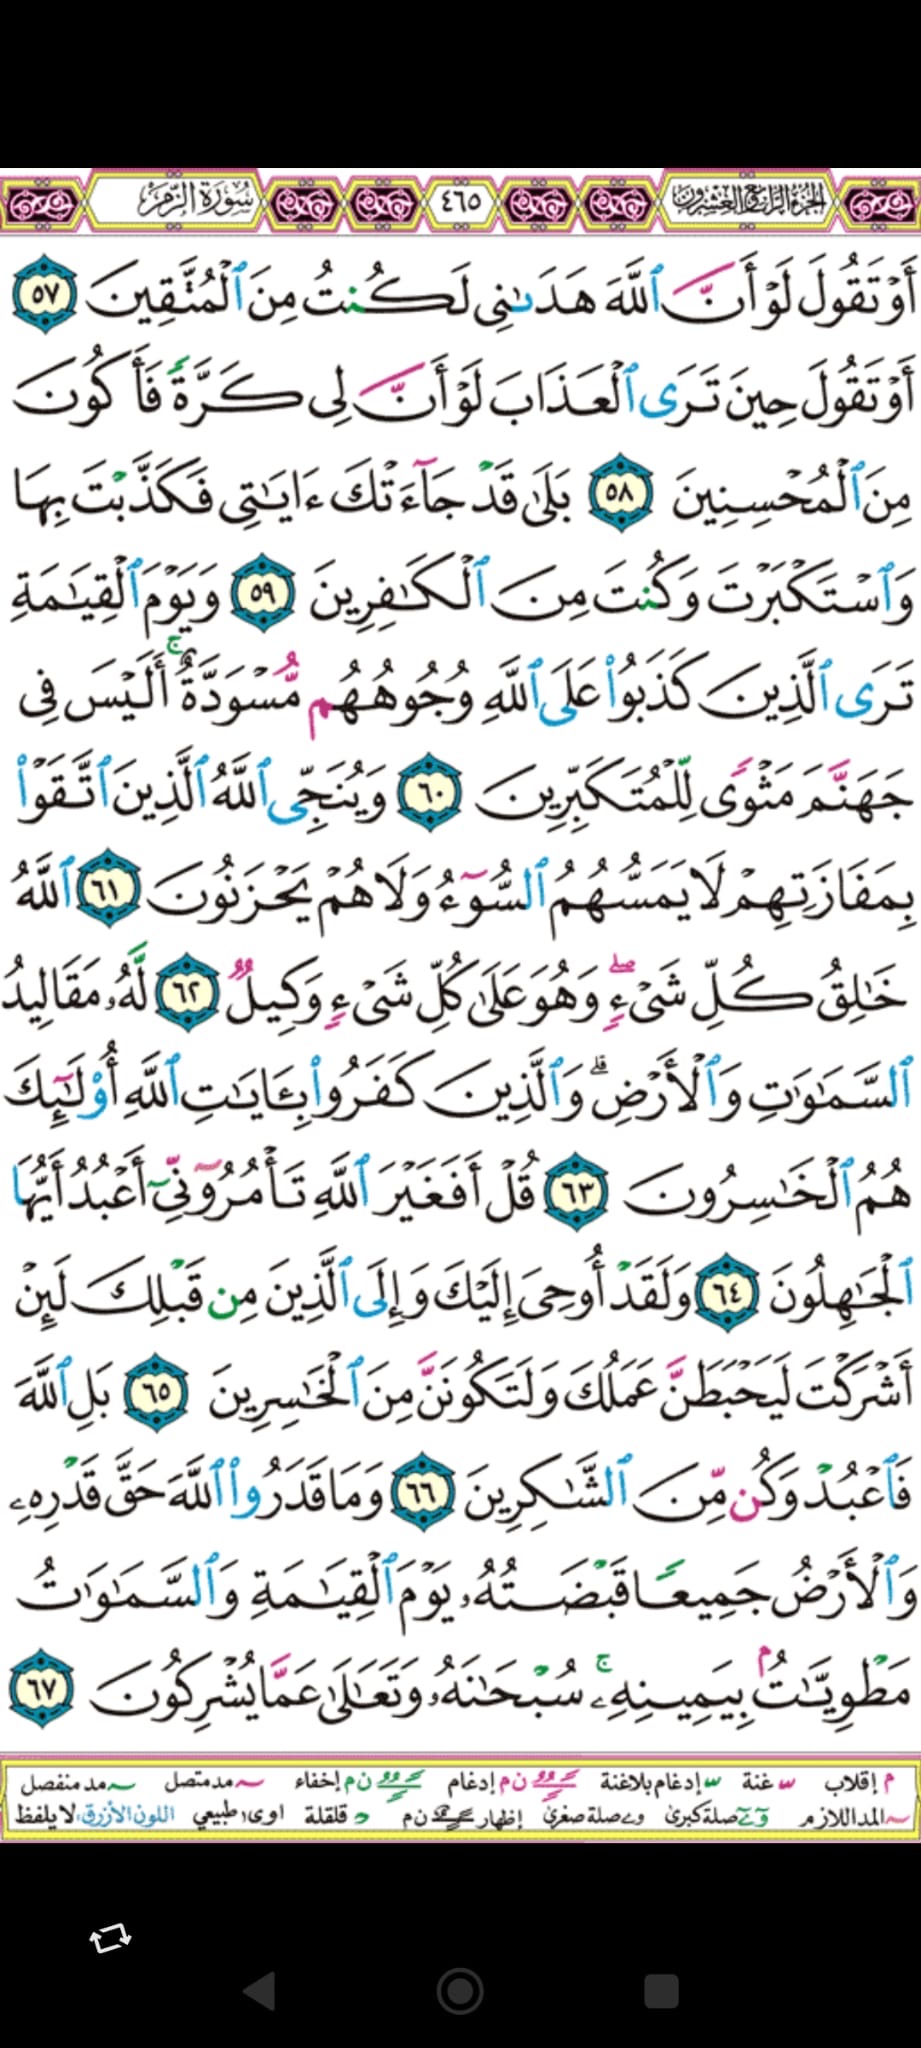 الجزء الرابع والعشرون ٤٦٥ سُورَةُ الزُّمَر
أَوْ تَقُولَ لَوْ أَنَّ ٱللَّهَ هَدَىٰنِى لَكُنتُ مِنَ ٱلْمُتَّقِينَ ٥٧
أَوْ تَقُولَ حِينَ تَرَى ٱلْعَذَابَ لَوْ أَنَّ لِى كَرَّةً فَأَكُونَ
مِنَ ٱلْمُحْسِنِينَ ٥٨ بَلَىٰ قَدْ جَآءَتْكَ ءَايَٰتِى فَكَذَّبْتَ بِهَا
وَٱسْتَكْبَرْتَ وَكُنتَ مِنَ ٱلْكَٰفِرِينَ ٥٩ وَيَوْمَ ٱلْقِيَٰمَةِ
تَرَى ٱلَّذِينَ كَذَبُوا۟ عَلَى ٱللَّهِ وُجُوهُهُم مُّسْوَدَّةٌ ۚ أَلَيْسَ فِى
جَهَنَّمَ مَثْوًى لِّلْمُتَكَبِّرِينَ ٦٠ وَيُنَجِّى ٱللَّهُ ٱلَّذِينَ ٱتَّقَوْا۟
بِمَفَازَتِهِمْ لَا يَمَسُّهُمُ ٱلسُّوٓءُ وَلَا هُمْ يَحْزَنُونَ ٦١ ٱللَّهُ
خَٰلِقُ كُلِّ شَىْءٍ ۖ وَهُوَ عَلَىٰ كُلِّ شَىْءٍ وَكِيلٌ ٦٢ لَّهُۥ مَقَالِيدُ
ٱلسَّمَٰوَٰتِ وَٱلْأَرْضِ ۗ وَٱلَّذِينَ كَفَرُوا۟ بِـَٔايَٰتِ ٱللَّهِ أُو۟لَٰٓئِكَ
هُمُ ٱلْخَٰسِرُونَ ٦٣ قُلْ أَفَغَيْرَ ٱللَّهِ تَأْمُرُوٓنِّىٓ أَعْبُدُ أَيُّهَا
ٱلْجَٰهِلُونَ ٦٤ وَلَقَدْ أُوحِىَ إِلَيْكَ وَإِلَى ٱلَّذِينَ مِن قَبْلِكَ لَئِنْ
أَشْرَكْتَ لَيَحْبَطَنَّ عَمَلُكَ وَلَتَكُونَنَّ مِنَ ٱلْخَٰسِرِينَ ٦٥ بَلِ ٱللَّهَ
فَٱعْبُدْ وَكُن مِّنَ ٱلشَّٰكِرِينَ ٦٦ وَمَا قَدَرُوا۟ ٱللَّهَ حَقَّ قَدْرِهِۦ
وَٱلْأَرْضُ جَمِيعًا قَبْضَتُهُۥ يَوْمَ ٱلْقِيَٰمَةِ وَٱلسَّمَٰوَٰتُ
مَطْوِيَّٰتٌۢ بِيَمِينِهِۦ ۚ سُبْحَٰنَهُۥ وَتَعَٰلَىٰ عَمَّا يُشْرِكُونَ ٦٧
م إقلاب غنة إدغام بلاغنة ن م إدغام ن م إخفاء مد متصل مد منفصل
المد اللازم صلة كبرى و ے صلة صغرى إظهار ن م قلقلة اوى طبيعي اللون الأزرق: لا يلفظ